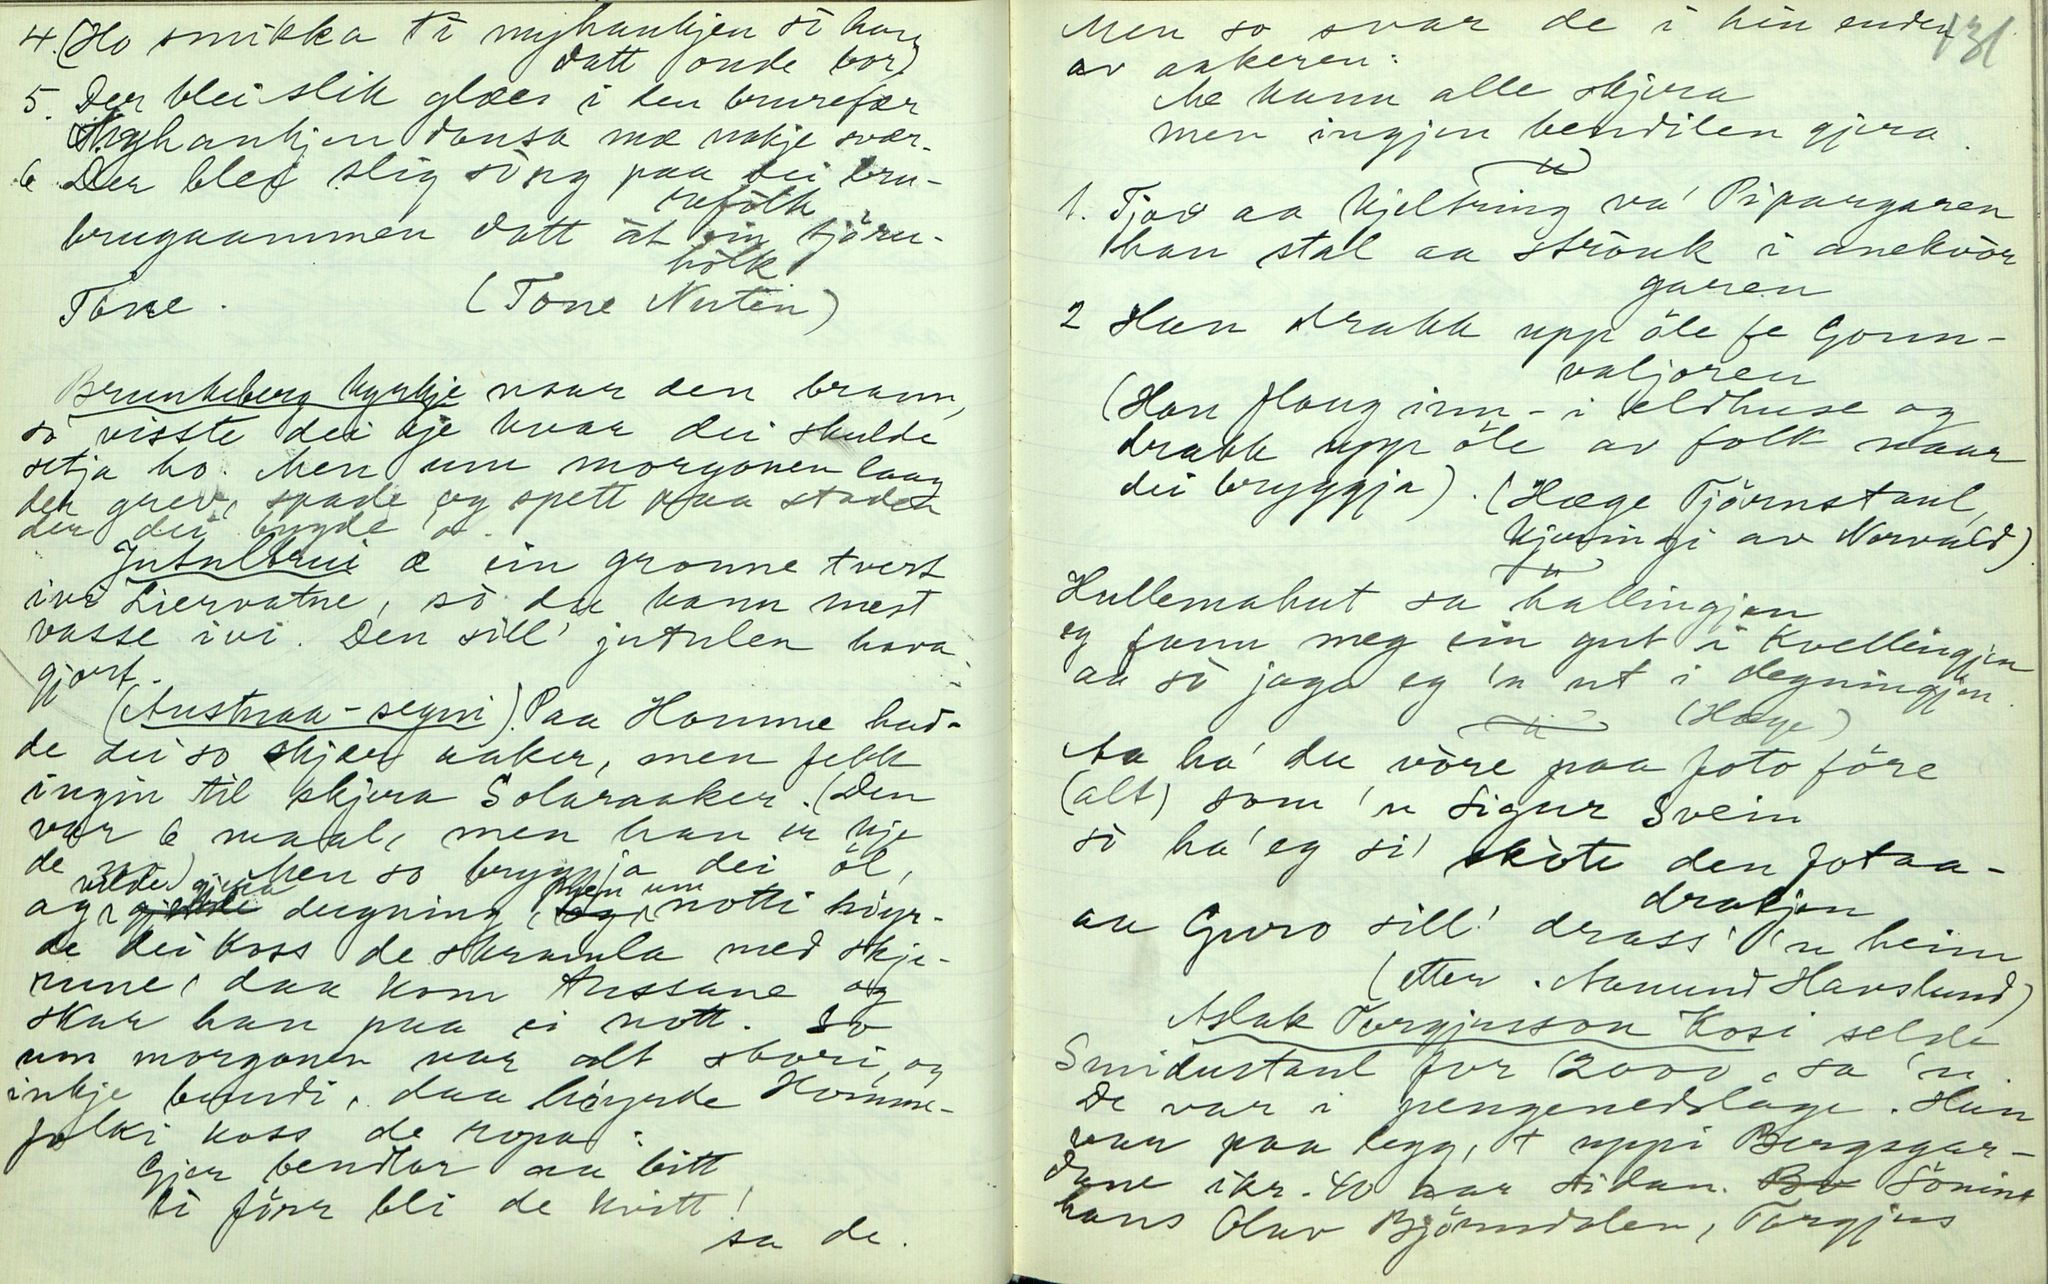 4. (Ho smikka ti nyhankjen si han
datt onde bor)
5. Der blei slik glæes i den brurefær
Nyhankjen dansa mæ nakje svær.
6 Der blei slig söng paa dei bru-
refölk
brugaammen datt åt ein tjöru-
hölk
Tone. (Tone Nutin)
Brunkeberg kyrkje naar den brann,
so visste dei kje kvar dei skulde
setja ho. Men um morgonen laag
der grev, spade og spett paa staden
der dei bygde o.
Jutulbrui æ ein gronne tvert
ivi Liervatne, sò du kann mest
vasse ivi. Den sill' jutulen hava
gjort.
(Austraa-segni). Paa Homme had-
de dei so skjær aaker, men fekk
ingin til skjera Solaraaker. (Den
var 6 maal, men han er kje
de no) Men so bryggja dei öl,
vilde gjera Men um
og degning, notti höyr-
de dei koss de skramla med skje-
rune, daa kom tussane og
skar han paa ei nott. So
um morgonen var alt skori, og
inkje bundi, daa höyrde Homme-
folki koss de ropa:
Gjer bendlar aa bitt
ti förr bli de kvitt!
sa de.
131
Men so svar de i hin enden
av aakeren:
Me kann alle skjera
men ingjen bendilen gjera.
1. Tjov aa kjeltring va' Pipargaren
han stal aa strauk i anekvör
garen
2 Han drakk upp öle fe Gonn-
valjoren
(Han flaug inn i eldhuse og
drakk upp öle av folk naar
dei bryggja). (Hæge Tjörnstaul,
kjeringi av Norvald)
Hullemahut sa hallingjen
eg fann meg ein gut i kvellingjen
aa sò jaga eg 'n ut i degningjen.
(Hæge)
Aa ha' du vòre paa foto före
(alt) som 'n Sigur Svein
sò ha' eg si' sköte den fotaa-
drakjen
aa Guro sill' drass' 'n heim
(etter Aamund Havslund)
Aslak Torgjusson Kosi selde
Smidustaul for 12000, sa 'n.
De var i pengenedslage. Han
var paa legg, + uppi Bergsgar-
dane ikr. 40 aar sidan. Sönine
hans Olav Björnndalen, Torgjus